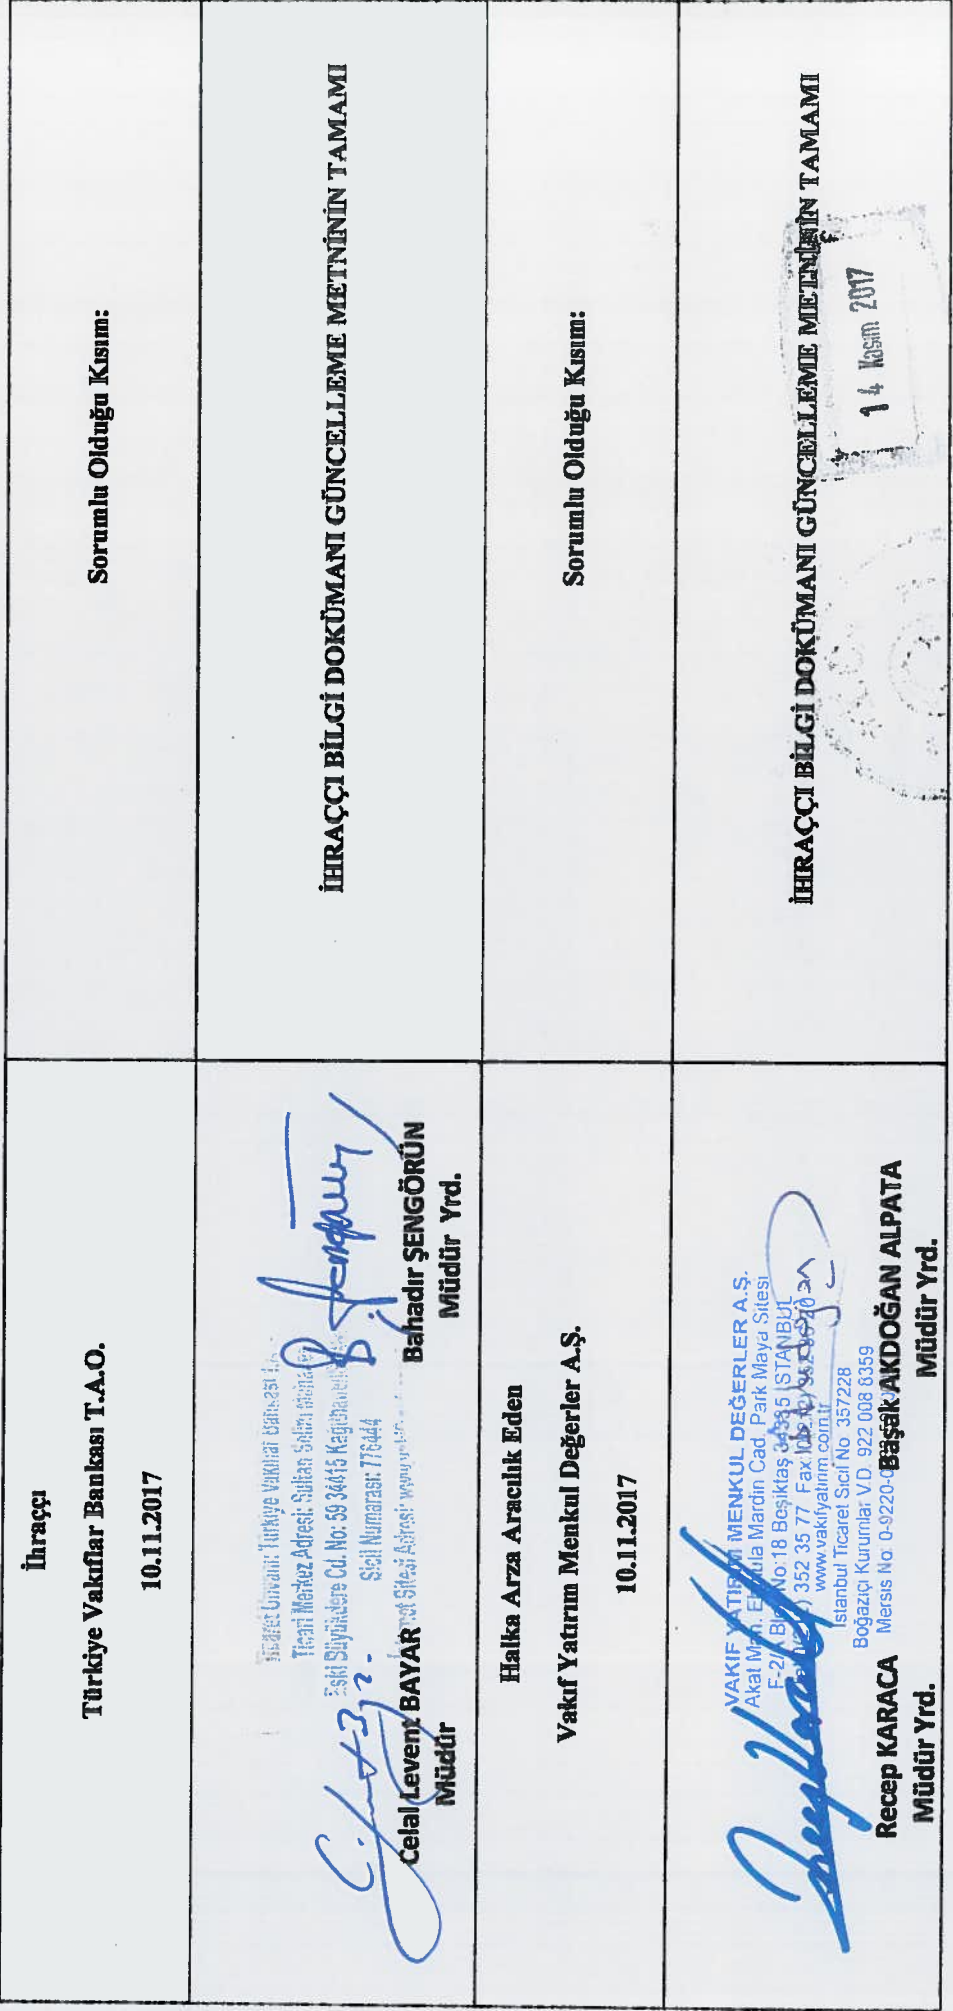 İhraççı
Türkiye Vakıflar Bankası T.A.O.
10.11.2017
Sorumlu Olduğu Kısım:
Ticari Merkez Adresi: Sultan Selim
Eski Büyükdere Cd. No: 59 34415
Sicil Numarası: 776444
Sitesi Adresi:
Celal Levent BAYAR
Müdür
Bahadır ŞENGÖRÜN
Müdür Yrd.
İHRAÇÇI BİLGİ DOKÜMANI GÜNCELLEME METNİNİN TAMAMI
Halka Arza Aracılık Eden
Vakıf Yatırım Menkul Değerler A.Ş.
10.11.2017
Sorumlu Olduğu Kısım:
VAKIF YATIRIM MENKUL DEĞERLER A.Ş.
Akat Mah. Ebulula Mardin Cad. Park Maya Sitesi
F-2/A Blok No:18 Beşiktaş 34335 İSTANBUL
352 35 77 Fax:
www.vakifyatirim.com.tr
İstanbul Ticaret Sicil No 357228
Boğaziçi Kurumlar V.D. 922 008 8359
Mersis No: 0-9220-0
Recep KARACA
Müdür Yrd.
Başak AKDOĞAN ALPATA
Müdür Yrd.
İHRAÇÇI BİLGİ DOKÜMANI GÜNCELLEME METNİNİN TAMAMI
14 Kasım 2017